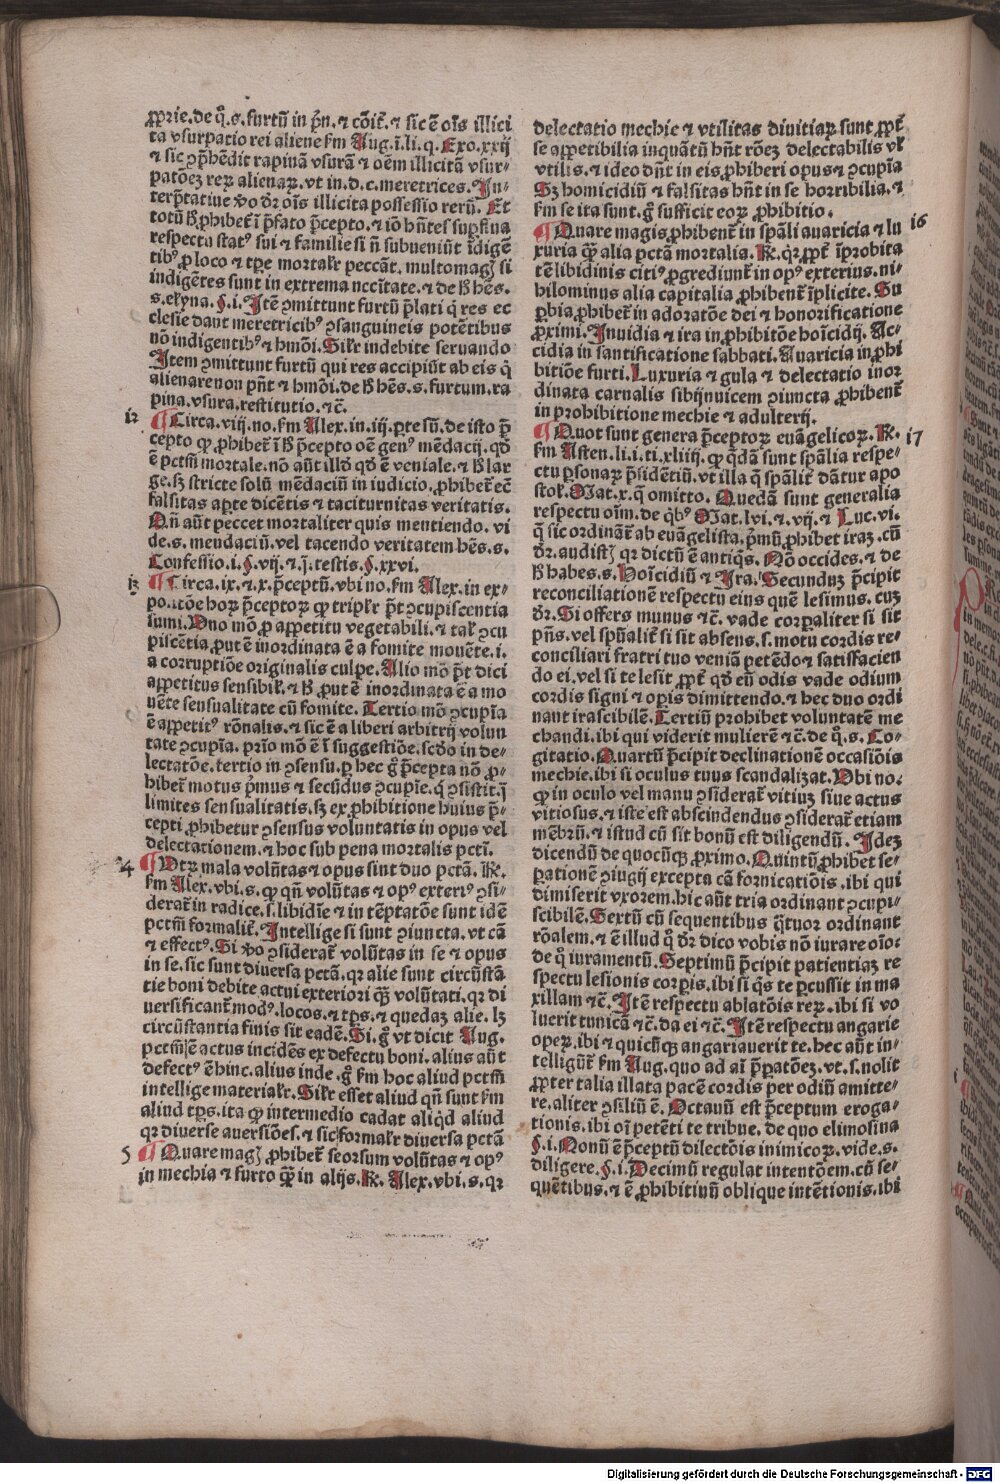 ꝓprie. de q̊. s. furtū in pͥn. ⁊ cōit̄. ⁊ sic ē oīs illici
ta vsurpatio rei aliene ẜm Aug. ī. li. q. Exo. xxij
⁊ sic ꝯp̄hēdit rapinā vsurā ⁊ oēm illicitā vsur-
patōeȝ reꝝ alienaꝝ. vt in. d. c. meretrices. In-
terp̄tatiue ꝟo dꝛ oīs illicita possessio rerū. Et
totū ꝓhibet̄ ī p̄fato p̄cepto. ⁊ iō hn̄tes suꝑflua
respectu statꝰ sui ⁊ familie si n̄ subueniūt īdigē
tibꝰ ꝓ loco ⁊ tꝑe mortalr̄ peccāt. multomagꝭ si
indigētes sunt in extrema nccītate. ⁊ de hēs.
s. elꝛyna. §. i. Itē ꝯmittunt furtū p̄lati q̇ res ec
clesie dant meretricibꝰ ꝯsanguineis potētibus
nō indigentibꝰ ⁊ hmōi. Silr̄ indebite seruando
Item ꝯmittunt furtū qui res accipiūt ab eis q̇
alienare non pn̄t ⁊ hmōi. de hēs. s. furtum. ra
pina. vsura. restitutio. ⁊c̄.
12 ¶ Circa. viij. no. ẜm Alex. in. iij. ꝑte sū. de isto p̄
cepto ꝙ ꝓhibet̄ ī p̄cepto oē genꝰ mēdacij. qd̄
ē pctm̄ mortale. nō aūt illd̄ qd̄ ē veniale. ⁊ lar
ge. sȝ stricte solū mēdaciū in iudicio. ꝓhibet̄ ec̄
falsitas aꝑte dicētis ⁊ taciturnitas veritatis.
Qn̄ aūt peccet mortaliter quis mentiendo. vi
de. s. mendaciū. vel tacendo veritatem hēs. s.
Confessio. i. §. vij. ⁊. q. testis. §. xxvi.
13 ¶ Circa. ix. ⁊. x. p̄ceptū. vbi no. ẜm Alex. in ex-
positōe hoꝝ p̄ceptoꝝ ꝙ triplr̄ p̄t ꝯcupiscentia
sumi. Vno mō ꝓ appetitu vegetabili. ⁊ talꝭ ꝯcu
piscētia, put ē inordinata ē a fomite mouēte. i.
a corruptiōe originalis culpe. Alio mō p̄t dici
appetitus sensibil̄. ⁊ ꝓut ē inordinata ē a mo
uēte sensualitate cū fomite. Tertio mō ꝯcupīa
ē appetitꝰ rōnalis. ⁊ sic ē a liberi arbitrij volun
tate ꝯcupīa. prīo mō ē ī suggestiōe. scd̄o in de-
lectatōe. tertio in ꝯsensu. ꝑ hec g̊ p̄cepta nō ꝓ-
hibet̄ motus pͥmus ⁊ secūdus ꝯcupīe. q̇ ꝯsistit. ī
limites sensualitatis. sȝ ex ꝓhibitione huius p̄-
cepti ꝓhibetur ꝯsensus voluntatis in opus vel
delectationem. ⁊ hoc sub pena mortalis pctī.
14 ¶ Vtꝝ mala volūtas ⁊ opus sint duo pctā. R̄.
ẜm Alex. vbi. s. ꝙ qn̄ volūtas ⁊ opꝰ exteriꝰ ꝯsi-
derat̄ in radice. s. libidīe ⁊ in tēptatōe sunt idē
pctm̄ formalit̄. Intellige si sunt ꝯiuncta. vt cā
⁊ effectꝰ. Si ꝟo ꝯsiderat̄ volūtas in se ⁊ opus
in se. sic sunt diuersa pctā. qꝛ alie sunt circūstā
tie boni debite actui exteriori qͣꝫ volūtati. qꝛ di
uersificant̄ modꝰ. locos. ⁊ tꝑs. ⁊ quedaȝ alie. lȝ
circūstantia finis sit eadē. Si. g̊ vt dicit Aug.
pctm̄ sē actus incidēs ex defectu boni. alius aūt
defectꝰ ē hinc. alius inde. g̊ ẜm hoc aliud pctm̄
intellige materialr̄. Silr̄ esset aliud qn̄ sunt ẜm
aliud tꝑs. ita ꝙ intermedio cadat aliq̇d aliud
qꝛ diuerse auersiōes. ⁊ sic formalr̄ diuersa pctā
5 ¶ Quare magꝭ ꝓhibet̄ seorsum volūtas ⁊ opꝰ
in mechia ⁊ furto qͣꝫ in alijs. R̄. Alex. vbi. s. qꝛ
delectatio mechie ⁊ vtilitas diuitiaꝝ sunt ꝓpt̄
se appetibilia inquātū hn̄t rōeȝ delectabilis vl̄
vtilis. ⁊ ideo dn̄t in eis, ꝓhiberi opus ⁊ ꝯcupīa
Sȝ homicidiū ⁊ falsitas hn̄t in se horribilia. ⁊
ẜm se ita sunt. g̊ sufficit eoꝝ ꝓhibitio.
¶ Quare magis ꝓhibent̄ in spāli auaricia ⁊ lu 16
xuria qͣꝫ alia pctā mortalia. R̄. qꝛ ꝓpt̄ īprobita
tē libidinis citiꝰ ꝓgrediunt̄ in opꝰ exterius. ni-
hilominus alia capitalia ꝓhibent̄ īplicite. Su
ꝑbia ꝓhibet̄ in adoratōe dei ⁊ honorificatione
ꝓximi. Inuidia ⁊ ira in ꝓhibitōe hoīcidij. Ac-
cidia in santificatione sabbati. Auaricia in ꝓhi
bitiōe furti. Luxuria ⁊ gula ⁊ delectatio inor
dinata carnalis sibijnuicem ꝯiuncta ꝓhibent̄
in prohibitione mechie ⁊ adulterij.
¶ Quot sunt genera p̄ceptoꝝ euāgelicoꝝ. R̄. 17
ẜm Asten. li. i. ti. xliiij. ꝙ q̄dā sunt spālia respe-
ctu ꝑsonaꝝ p̄sidētiū. vt illa q̄ spālit̄ dātur apo
stol̄. Mat. x. q̄ omitto. Quedā sunt generalia
respectu oīm. de qͥbꝰ Mat. lvi. ⁊. vij. ⁊ Luc. vi.
q̄ sic ordināt̄ ab euāgelista. pͥmū, ꝓhibet iraȝ. cū
dꝛ. audistꝭ qꝛ dictū ē antiqͥs. Nō occides. ⁊ de
habes. s. Hoīcidiū ⁊ Ira. Secunduȝ p̄cipit
reconciliationē respectu eius quē lesimus. cuȝ
dꝛ. Si offers munus ⁊c̄. vade corꝑaliter si sit
pn̄s. vel spūalit̄ si sit absens. s. motu cordis re-
conciliari fratri tuo veniā petēdo ⁊ satisfacien
do ei. vel si te lesit ꝓpt̄ qd̄ eū odis vade odium
cordis signi ⁊ opis dimittendo. ⁊ hec duo ordi
nant irascibilē. Tertiū prohibet voluntatē me
chandi. ibi qui viderit mulierē ⁊c̄. de q̊. s. Co-
gitatio. Quartū p̄cipit declinationē occasiōis
mechie. ibi si oculus tuus scandalizat. Vbi no.
ꝙ in oculo vel manu ꝯsiderat̄ vitiuȝ siue actus
vitiosus. ⁊ iste est abscindendus ꝯsiderat̄ etiam
mēbrū. ⁊ istud cū sit bonū est diligendū. Ideȝ
dicendū de quocūqꝫ ꝓximo. Quintū ꝓhibet se-
ꝑationē ꝯiugij excepta cā fornicatiōis. ibi qui
dimiserit vxorem. hic aūt tria ordinant ꝯcupi-
scibilē. Sextū cū sequentibus qͣtuor ordinant
rōalem. ⁊ ē illud q̊ dꝛ dico vobis nō iurare oīo-
de q̊ iuramentū. Septimū p̄cipit patientiaȝ re
spectu lesionis corꝑis. ibi si qͥs te ꝑcussit in ma
xillam ⁊c̄. Itē respectu ablatōis reꝝ. ibi si vo
luerit tunicā ⁊c̄. da ei ⁊c̄. Itē respectu angarie
opeꝝ. ibi ⁊ quicūqꝫ angariauerit te. hec aūt in-
telligūt̄ ẜm Aug. quo ad aī p̄ꝑatōeȝ. vt. s. nolit
ꝓpter talia illata pacē cordis per odiū amitte-
re. aliter ꝯsiliū ē. Octauū est p̄ceptum eroga-
tionis. ibi oī petēti te tribue. de quo elimosina
§. i. Nonū ē p̄ceptū dilectōis inimicoꝝ. vide. s.
diligere. §. i. Decimū regulat intentōem. cū se-
quētibus. ⁊ ē ꝓhibitiuū oblique intētionis. ibi
Digitalisierung gefördert durch die Deutsche Forschungsgemeinschaft - DFG